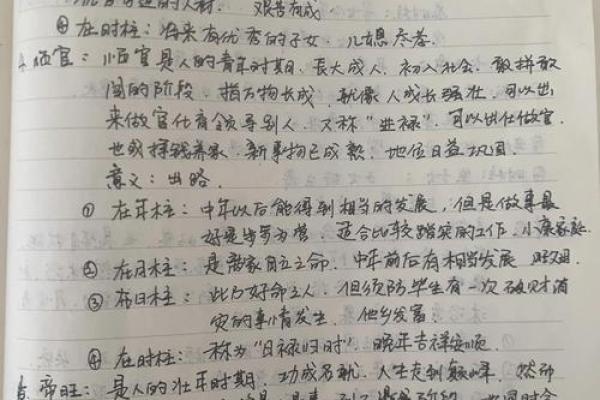 艰苦有成
④在时柱：将来有优秀的子女，儿媳尽孝
临官：临官是人的青年时期，长大成人，初入社会，敢拼敢
闯的阶段，指万物长成，就像人成长强壮，可以出
来做官仕有领导别人，又称"进禄"，可以出仕做官，
也或挣钱养家，新事物已成熟，地位日益巩固。
意义：出路
① 在年柱：中年以后能得到相当的发展，但是做事最
好是步步为营，适合比较踏实的工作，小康家庭
② 在月柱：是离家自立之命，中年前后有相当发展
③ 在日柱：此乃好命之人，但须防毕生有一次破财消
灾的事情发生，他乡发富
④ 在时柱：称为"日禄归时"，晚年吉祥安顺
帝旺：是人的壮年时期，功成名就，人生走到巅峰，然而